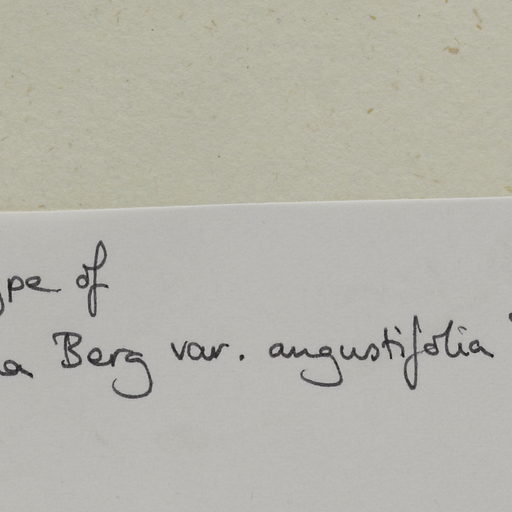 ype of
a Berg var. angustifolia